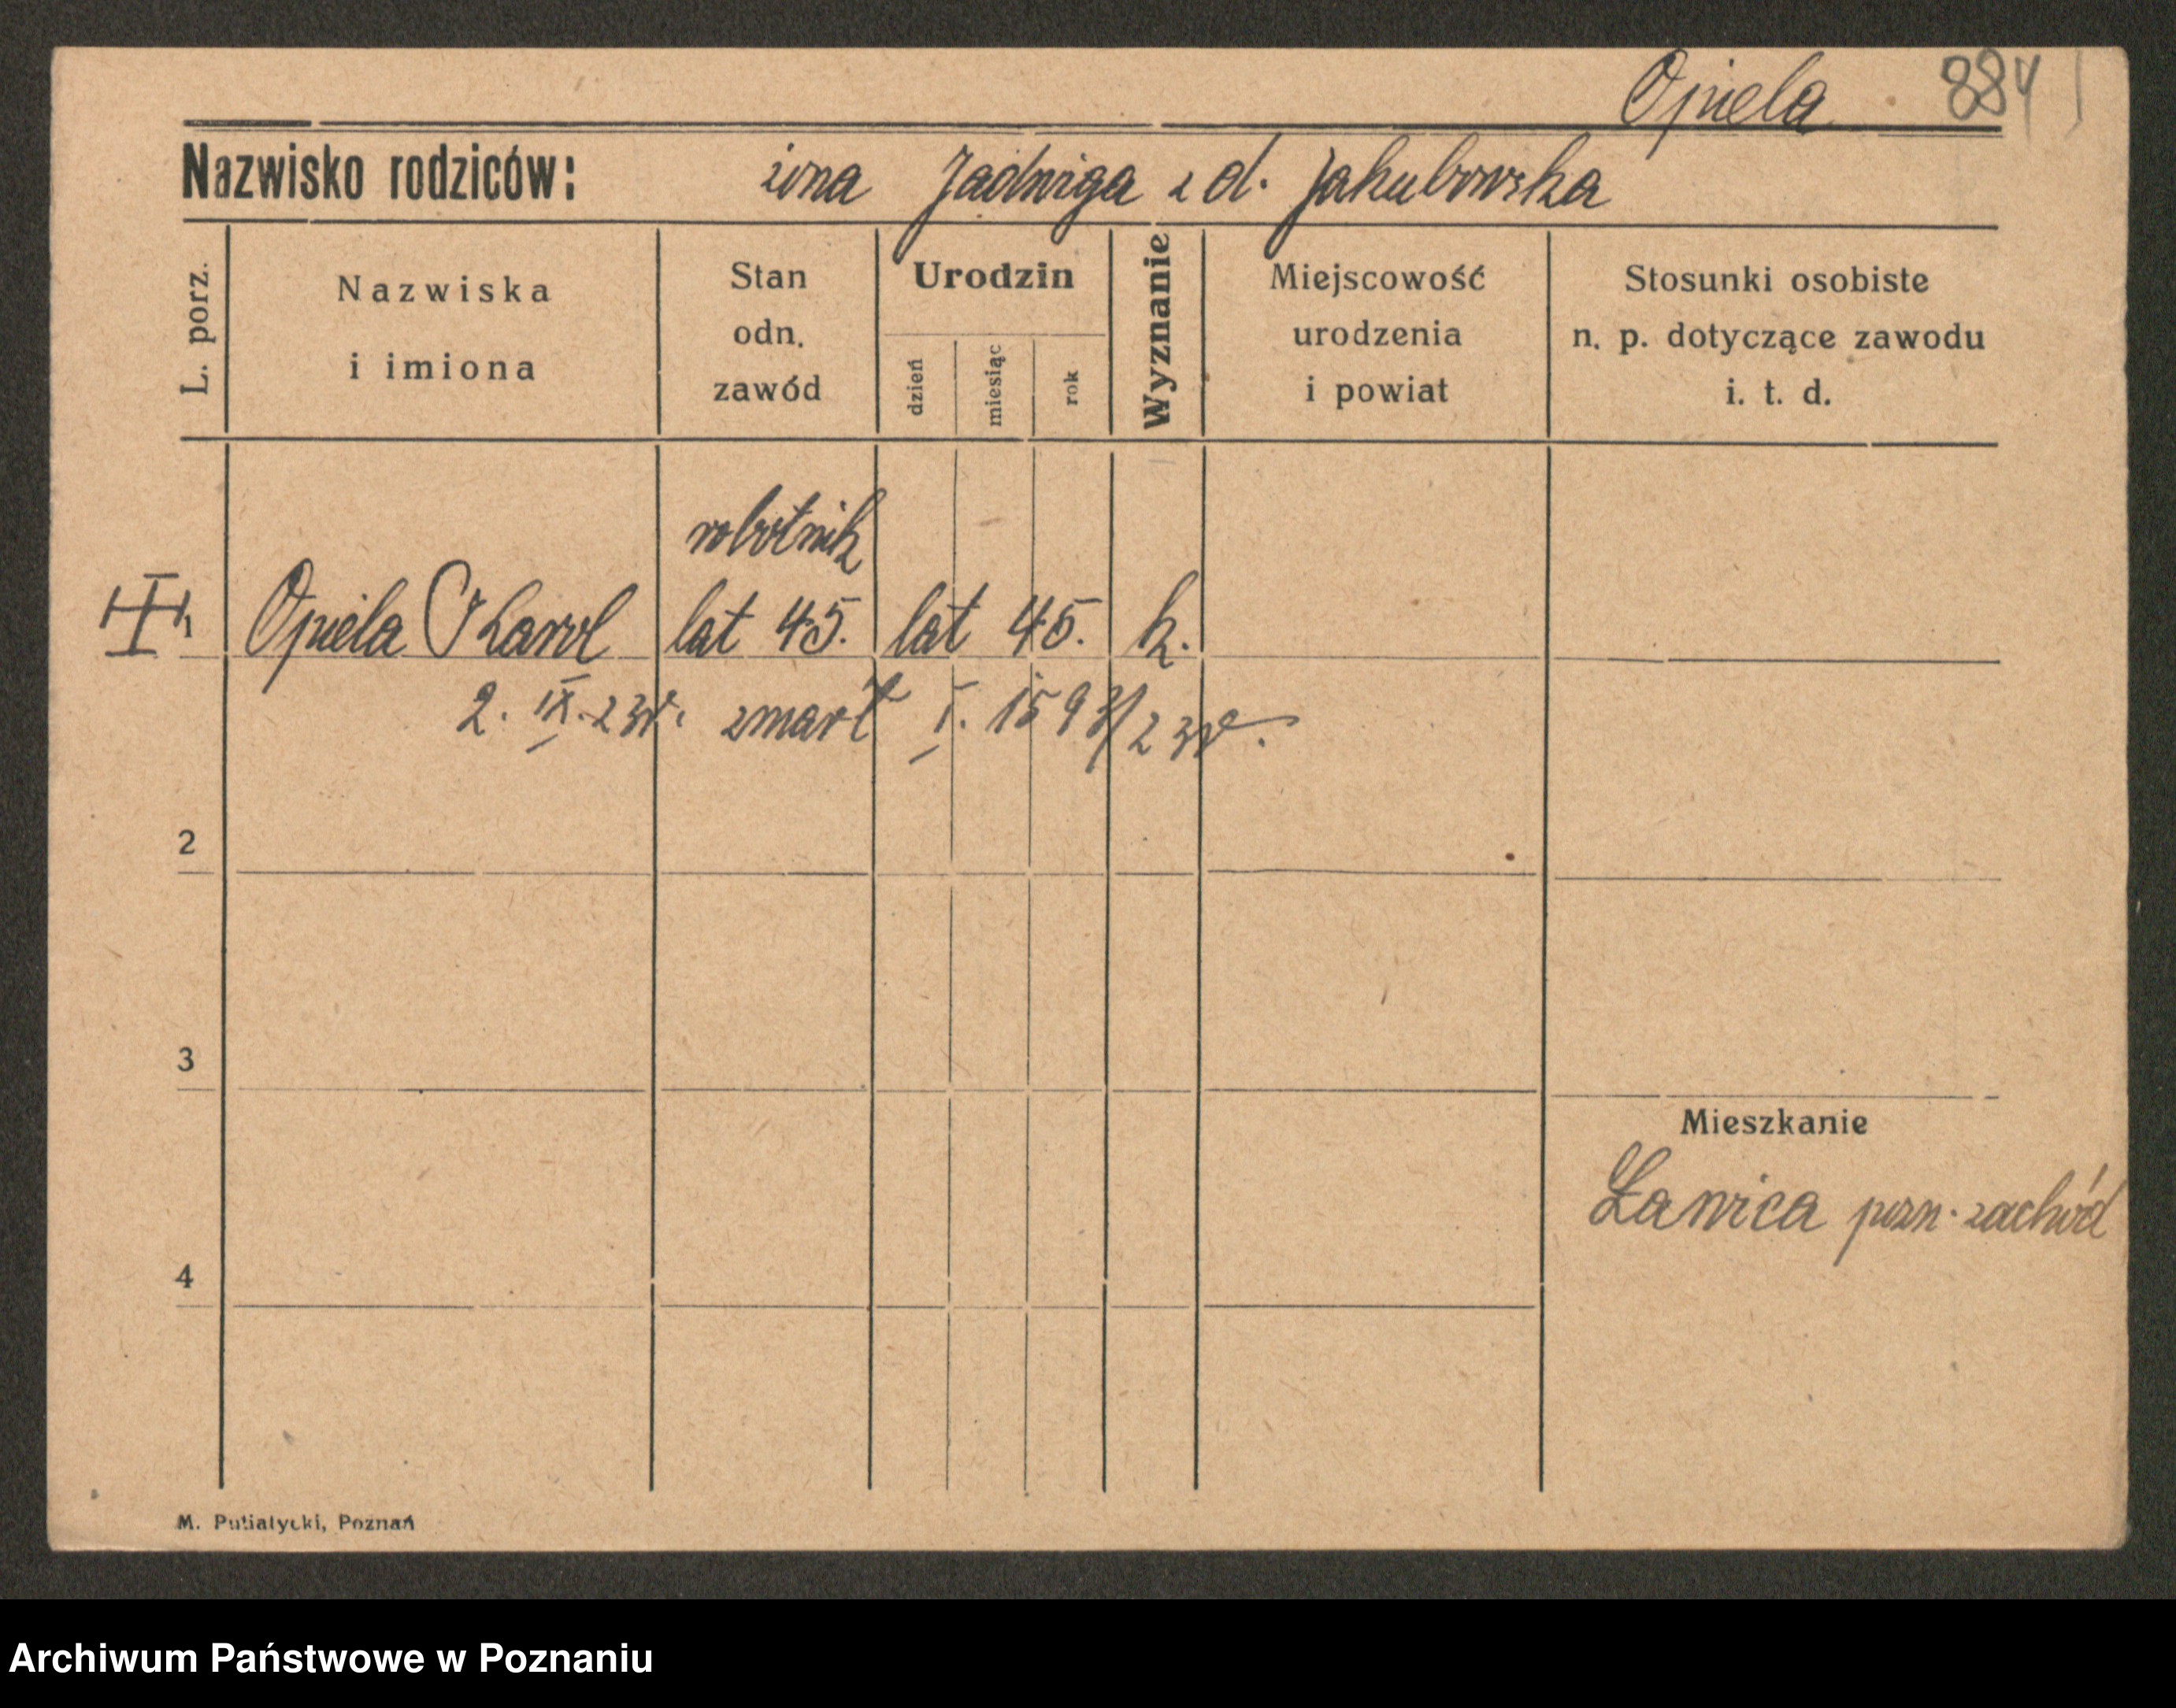 Opiela 884
Nazwisko rodziców: żona Jadwiga z d. Jakubowska
L. porz.
Nazwiska
i imiona
Stan
odn.
zawód
Urodzin
dzień
miesiąc
rok
Wyznanie
Miejscowość
urodzenia
i powiat
Stosunki osobiste
n. p. dotyczące zawodu
i. t. d.
robotnik
1 Opiela Karol lat 45. lat 45. k.
2. IX. 23r. zmarł I. 1593/23r.
2
3
Mieszkanie
Ławica pozn. zachód
4
M. Putiatycki, Poznań
Archiwum Państwowe w Poznaniu